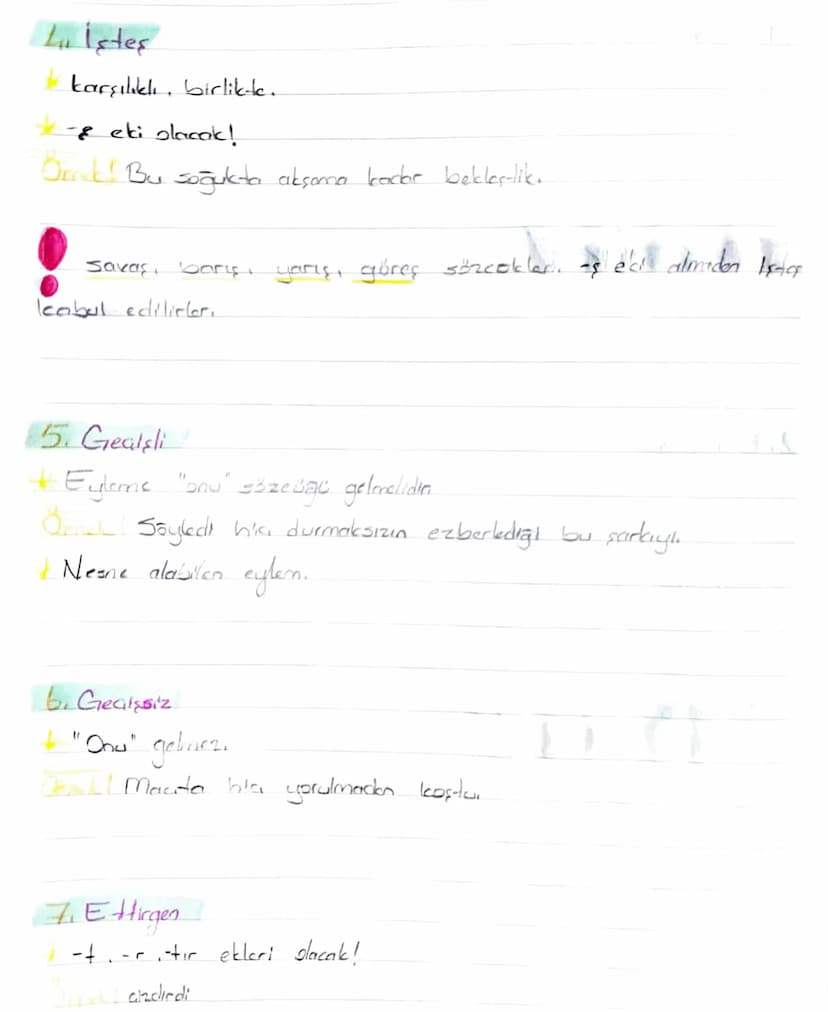 4. İşteş
karşılıklı, birlikte.
-ş eki olacak!
Örnek! Bu soğukta akşama kadar bekleştik.
savaş, barış, yarış, güreş sözcükleri, -ş eki almadan işteş
kabul edilirler.
5. Geçişli
Eyleme "onu" sözcüğü gelmelidir.
Örnek! Söyledi hiç durmaksızın ezberlediği bu şarkıyı.
Nesne alabilen eylem.
6. Geçişsiz
"Onu" gelmez.
Örnek! Maçta hiç yorulmadan koştu.
7. Ettirgen
-t, -r, -tır ekleri olacak!
Örnek! çizdirdi